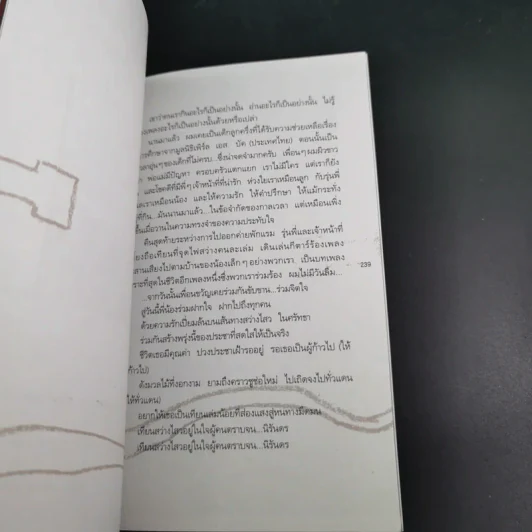 เขาว่าคนเรากินอะไรก็เป็นอย่างนั้น อ่านอะไรก็เป็นอย่างนั้น ไม่รู้
เพลงอะไรก็เป็นอย่างนั้นด้วยหรือเปล่า
นานมาแล้ว ผมเคยเป็นเด็กลูกครึ่งที่ได้รับความช่วยเหลือเรื่อง
ศึกษาจากมูลนิธิเพิร์ล เอส. บัค (ประเทศไทย) ตอนนั้นเป็น
เด็กที่ไม่ครบ...ซึ่งน่าจดจำมากครับ เพื่อนๆ ผมผิวขาว
พ่อแม่มีปัญหา ครอบครัวแตกแยก เราไม่มีใคร แต่เราก็ยัง
และโชคดีที่มีพี่ๆ เจ้าหน้าที่ที่น่ารัก ห่วงใยเราเหมือนลูก กับรุ่นพี่
เราเหมือนน้อง และให้ความรัก ให้คำปรึกษา ให้แม้กระทั่ง
มันนานมาแล้ว...ในข้อจำกัดของกาลเวลา แต่เหมือนเพิ่ง
เมื่อวานในความทรงจำของความประทับใจ
คืนสุดท้ายระหว่างการไปออกค่ายพักแรม รุ่นพี่และเจ้าหน้าที่
ถือเทียนที่จุดไฟสว่างคนละเล่ม เดินเล่นกีตาร์ร้องเพลง
เสียงไปตามบ้านของน้องเล็กๆ อย่างพวกเรา เป็นบทเพลง
ที่สุดในชีวิตอีกเพลงหนึ่งซึ่งพวกเราร่วมร้อง ผมไม่มีวันลืม...
239
...จากวันนั้นเพื่อนขวัญเคยร่วมกันขับขาน...ร่วมจิตใจ
สู่วันนี้พี่น้องร่วมฝากใจ ฝากไปถึงทุกคน
ด้วยความรักเปี่ยมล้นบนเส้นทางสว่างไสว ในศรัทธา
ร่วมกันสร้างพรุ่งนี้ของประชาที่สดใสให้เป็นจริง
ชีวิตเธอมีคุณค่า ปวงประชาเฝ้ารออยู่ รอเธอเป็นผู้ก้าวไป (ให้
ก้าวไป)
ดังมวลไม้ที่งอกงาม ยามถึงคราวชูช่อใหม่ ไปเถิดจงไปทั่วแดน
(ให้ทั่วแดน)
อยากให้เธอเป็นเทียนเล่มน้อยที่ส่องแสงสู่หนทางมืดมน
เทียนสว่างไสวอยู่ในใจผู้คนตราบจน...นิรันดร
เทียนสว่างไสวอยู่ในใจผู้คนตราบจน...นิรันดร